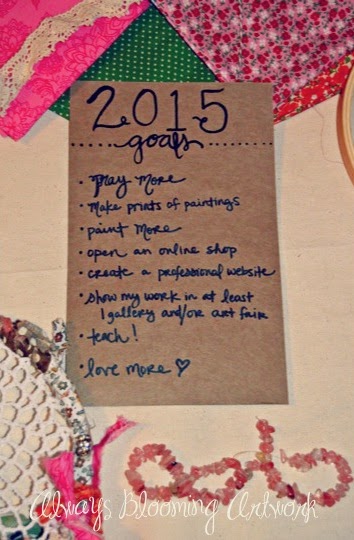 2015
goals
• Pray More
• Make prints of paintings
• paint More
• open an online shop
• create a professional website
• show my work in at least
1 gallery and/or art fair
• teach!
• love more ♡
Always Blooming Artwork